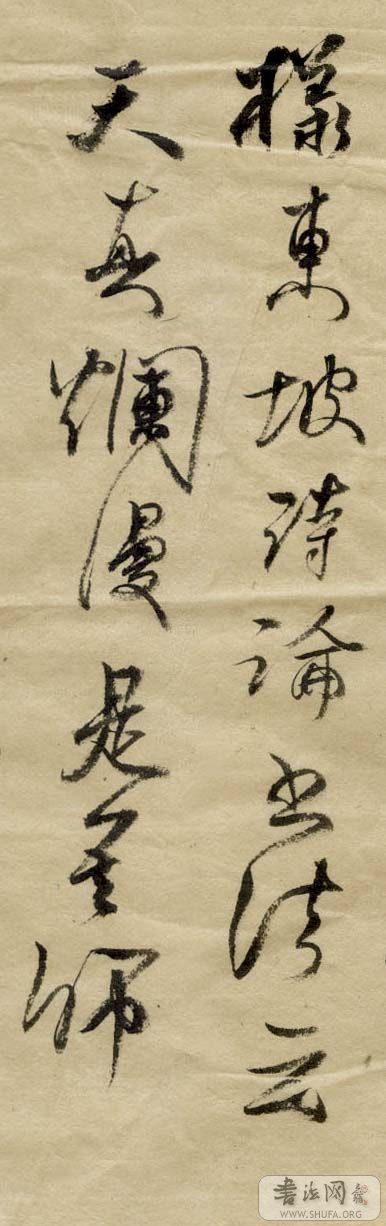 樣東坡詩論書法云
天真爛漫是吾師
書法网
WWW.SHUFA.ORG